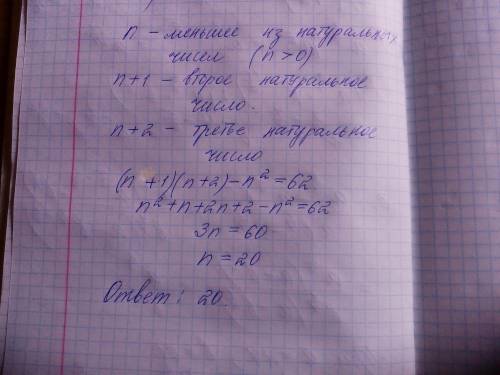 n - меньшее из натуральных
чисел (n > 0)
n+1 - второе натуральное
число.
n+2 - третье натуральное
число
(n +1)(n+2)-n²=62
n²+n+2n+2-n²=62
3n = 60
n = 20
Ответ: 20